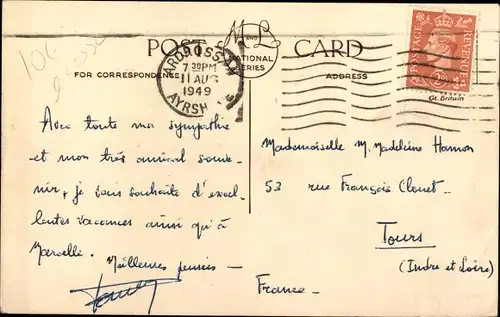 106
POST CARD
M AND L
NATIONAL
SERIES
FOR CORRESPONDENCE
ADDRESS
ARDROSSAN
7 30PM
11 AUG
1949
AYRSHIRE
POSTAGE
REVENUE
Gt. Britain
Avec toute ma sympathie
et mon très amical souve-
nir, je vous souhaite d'excel-
lentes vacances ainsi qu'à
Marcelle. Meilleures pensées -
Mademoiselle M. Madeleine Hamon
53 rue François Clouet -
Tours
(Indre et Loire)
France -